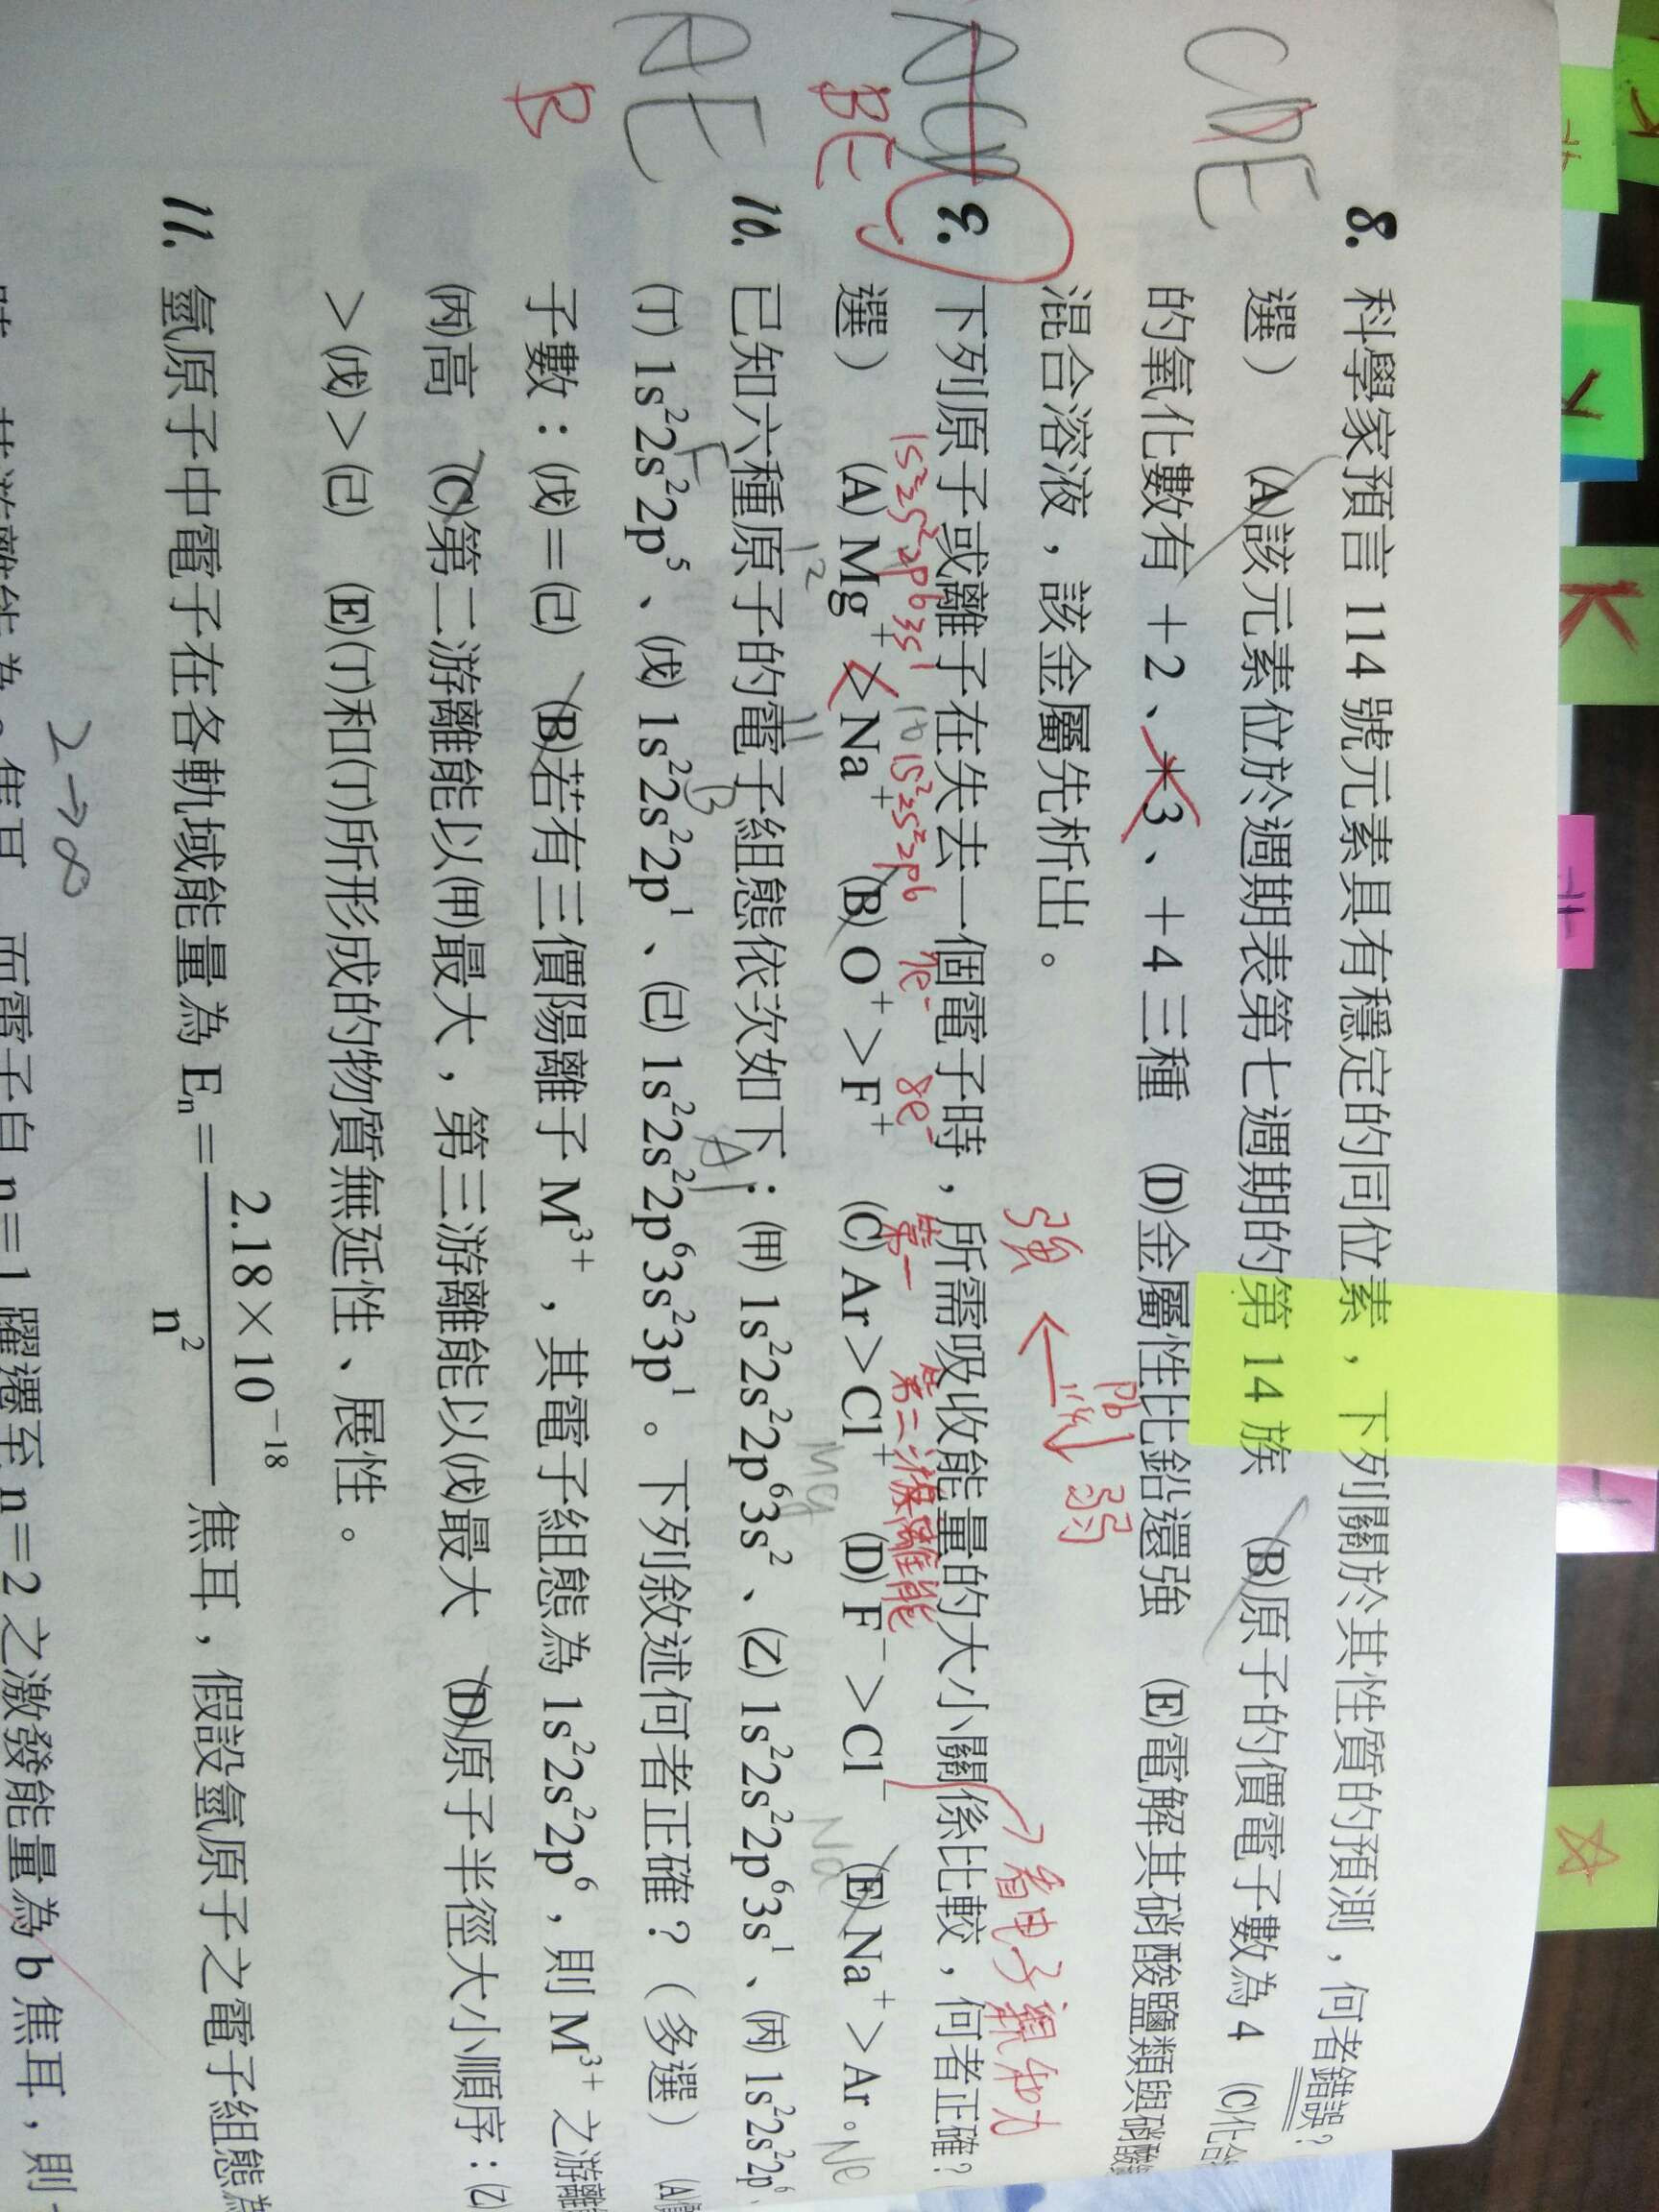 CDE
8. 科學家預言 114 號元素具有穩定的同位素，下列關於其性質的預測，何者錯誤？
選） (A)該元素位於週期表第七週期的第 14 族 (B)原子的價電子數為 4 (C)化合
的氧化數有 +2、+3、+4 三種 (D)金屬性比鉛還強 (E)電解其硝酸鹽類與硝酸
混合溶液，該金屬先析出。
強 Pb 弱
看电子親和力
BE
9. 下列原子或離子在失去一個電子時，所需吸收能量的大小關係比較，何者正確？
1s²2s²2p⁶3s¹ 10 1s²2s²2p⁶ 7e⁻ 8e⁻ 第一 第二游離能
選） (A) Mg⁺ > Na⁺ (B) O⁺ > F⁺ (C) Ar > Cl⁺ (D) F⁻ > Cl⁻ (E) Na⁺ > Ar。
12 11 Mg Na Ne
AE
B
10. 已知六種原子的電子組態依次如下：(甲) 1s²2s²2p⁶3s²、(乙) 1s²2s²2p⁶3s¹、(丙) 1s²2s²2p⁶、
F B Al
(丁) 1s²2s²2p⁵、(戊) 1s²2s²2p¹、(己) 1s²2s²2p⁶3s²3p¹。下列敘述何者正確？（多選） (A)價
子數：(戊)＝(己) (B)若有三價陽離子 M³⁺，其電子組態為 1s²2s²2p⁶，則 M³⁺ 之游離
(丙)高 (C)第二游離能以(甲)最大，第三游離能以(戊)最大 (D)原子半徑大小順序：(乙)
＞(戊)＞(己) (E)(丁)和(丁)所形成的物質無延性、展性。
11. 氫原子中電子在各軌域能量為 Eₙ＝2.18×10⁻¹⁸/n² 焦耳，假設氫原子之電子組態為
2→∞
而電子自 n＝1 躍遷至 n＝2 之激發能量為 b 焦耳，則